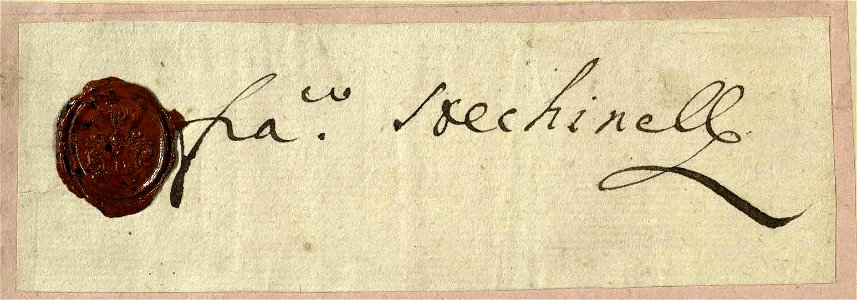 fra.co Stechinelli